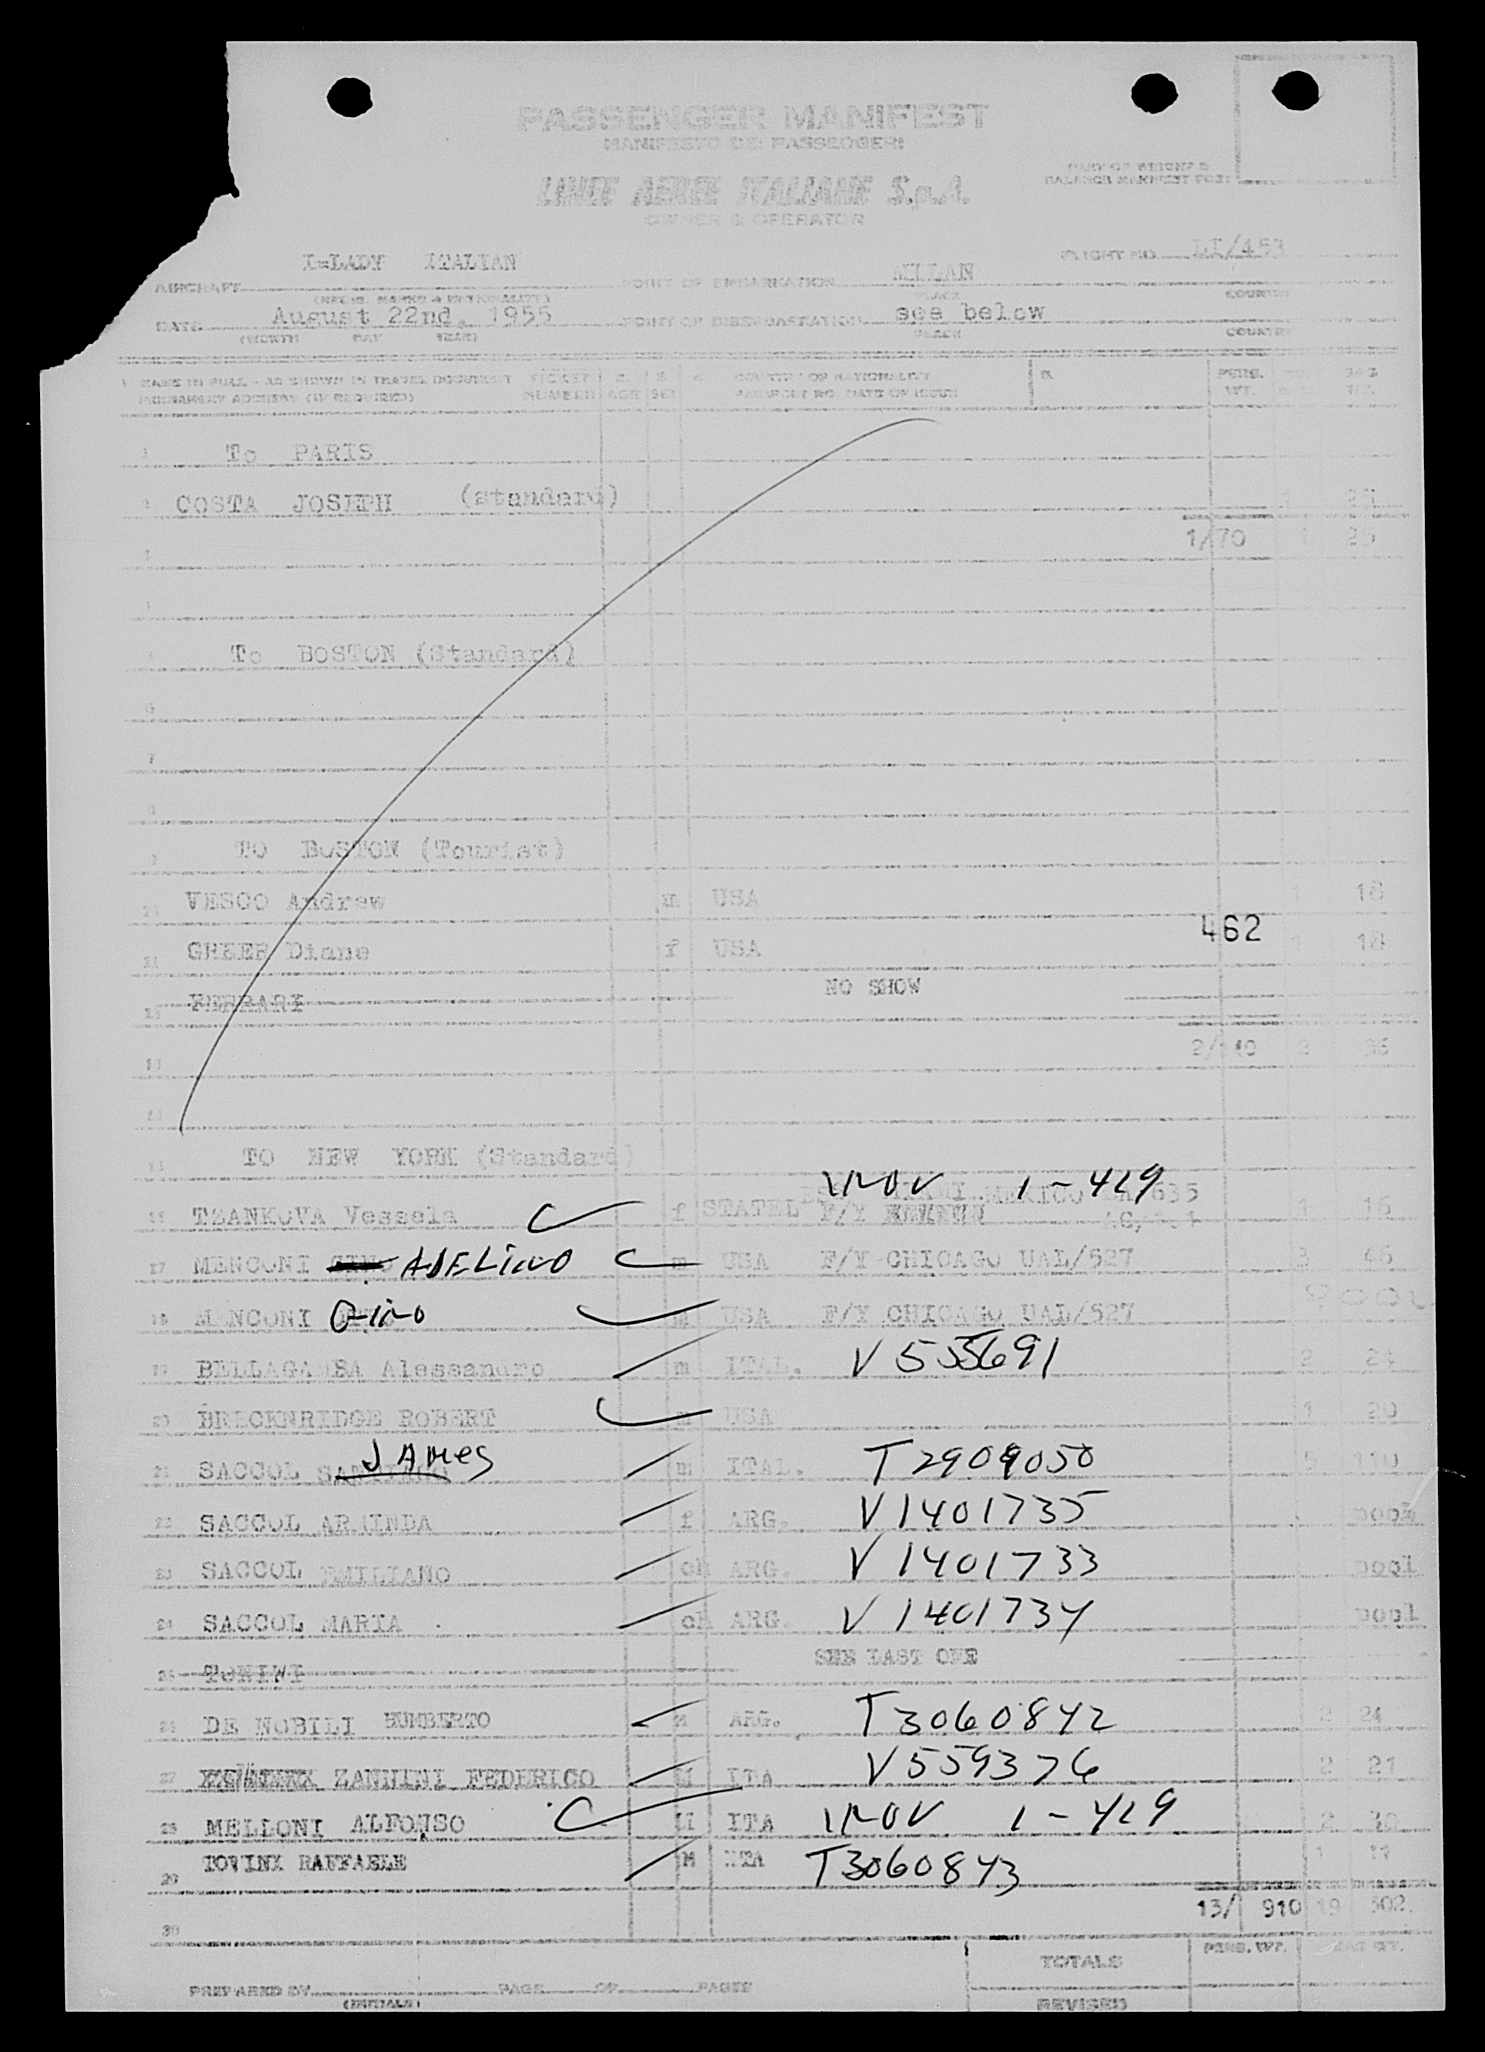 PASSENGER MANIFEST
MANIFESTO DEI PASSEGGERI
PART OF WEIGHT &
BALANCE MANIFEST FOR:
LINEE AEREE ITALIANE S.p.A.
OWNER & OPERATOR
AIRCRAFT I=LADY ITALIAN POINT OF EMBARKATION MILAN FLIGHT NO. LI/453
(REGIS. MARKS & NATIONALITY) PLACE COUNTRY
DATE August 22nd, 1955 POINT OF DISEMBARKATION see below
(MONTH DAY YEAR) PLACE COUNTRY
NAME IN FULL - AS SHOWN IN TRAVEL DOCUMENT TICKET COUNTRY OF NATIONALITY PERS.
(IF REQUIRED) NUMBER AGE SEX PASSPORT NO. DATE OF ISSUE WT.
To PARIS
2 COSTA JOSEPH (standard) 1 25
1/70 1 25
To BOSTON (Standard)
6
7
8
9 TO BOSTON (Tourist)
10 VESCO Andrew m USA 1 18
462
11 GREER Diane f USA 1 18
12 FERRARI NO SHOW
13 2/140 2 36
14
15 TO NEW YORK (Standard)
1-429
16 TZANKOVA Vessela f STATEL F/Y 1 16
17 MENCONI GINO ADELINO m USA F/Y CHICAGO UAL/527 3 46
18 MENCONI GINO m USA F/Y CHICAGO UAL/527 POOL
19 BELLAGAMBA Alessandro m ITAL. V 555691 2 24
20 BRECKNRIDGE ROBERT m USA 1 20
JAMES
21 SACCOL m ITAL. T2909050 5 110
22 SACCOL ARMINDA f ARG. V1401735 pool
23 SACCOL EMILIANO ch ARG. V 1401733 pool
24 SACCOL MARIA ch ARG. V 1401734 pool
25 TONINI SEE LAST ONE
26 DE NOBILI HUMBERTO M ARG. T3060842 2 24
27 ZANNINI FEDERICO M ITA V559376 2 21
28 MELLONI ALFONSO M ITA 1-429 2
29 TOVINI RAFFAELE M ITA T3060843 1
13/ 910 19 302
30
TOTALS PERS. WT.
PREPARED BY (INITIALS) PAGE OF PAGES
REVISED